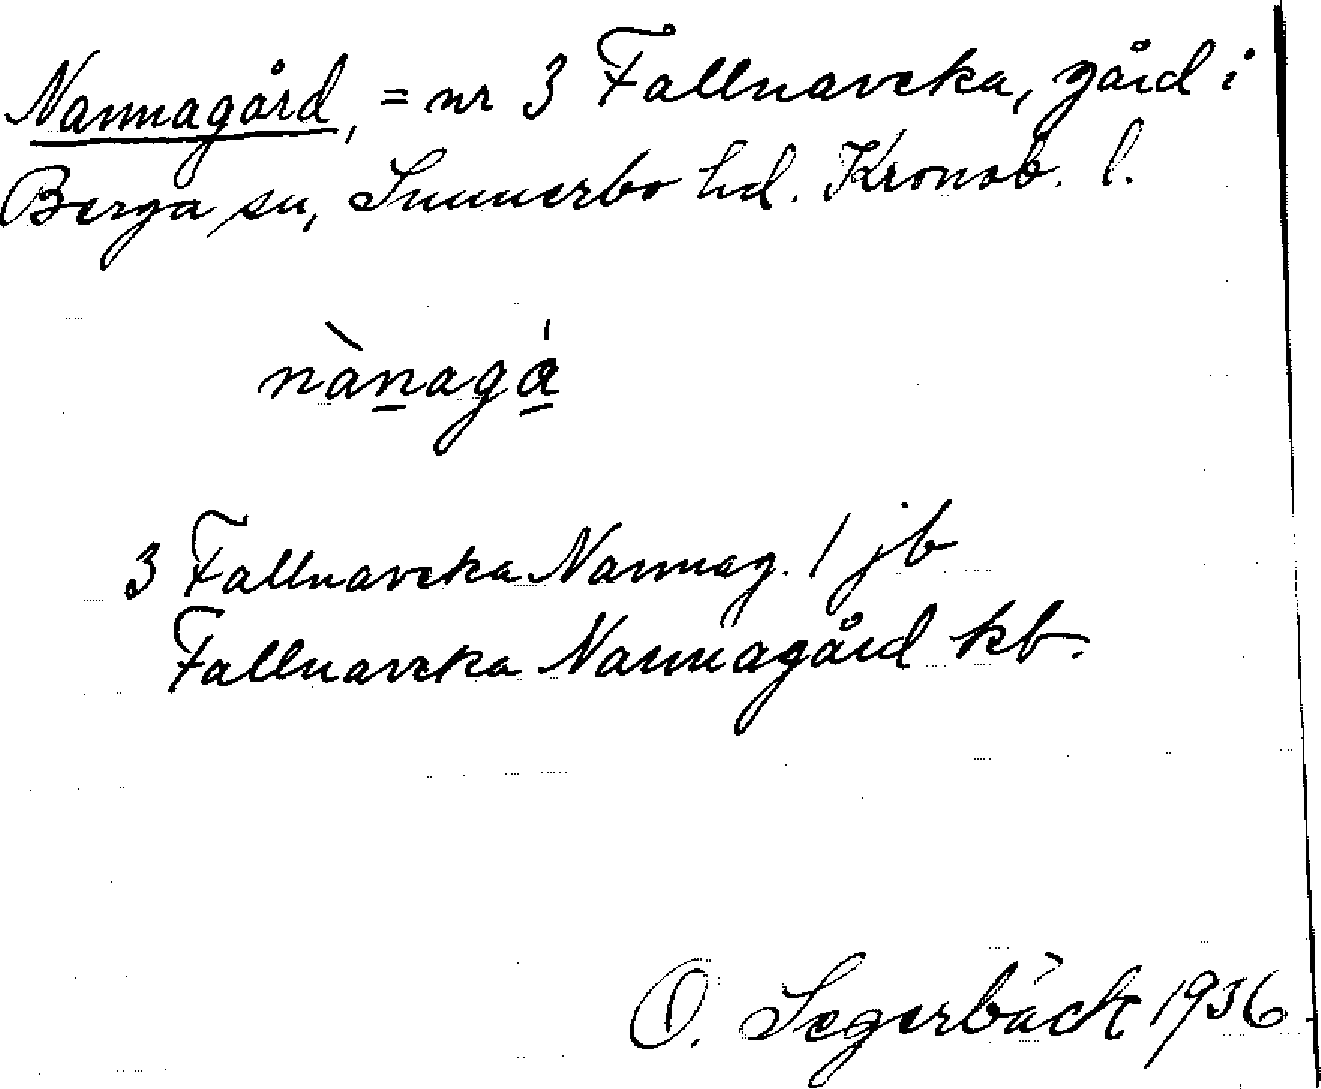 Nannagård, = nr 3 Fallnaveka, gård i
Berga sn, Sunnerbo hd. Kronob. l.
nànagá
3 Fallnaveka Nannag. 1 jb
Fallnaveka Nannagård kb.
O. Segerbäck 1936